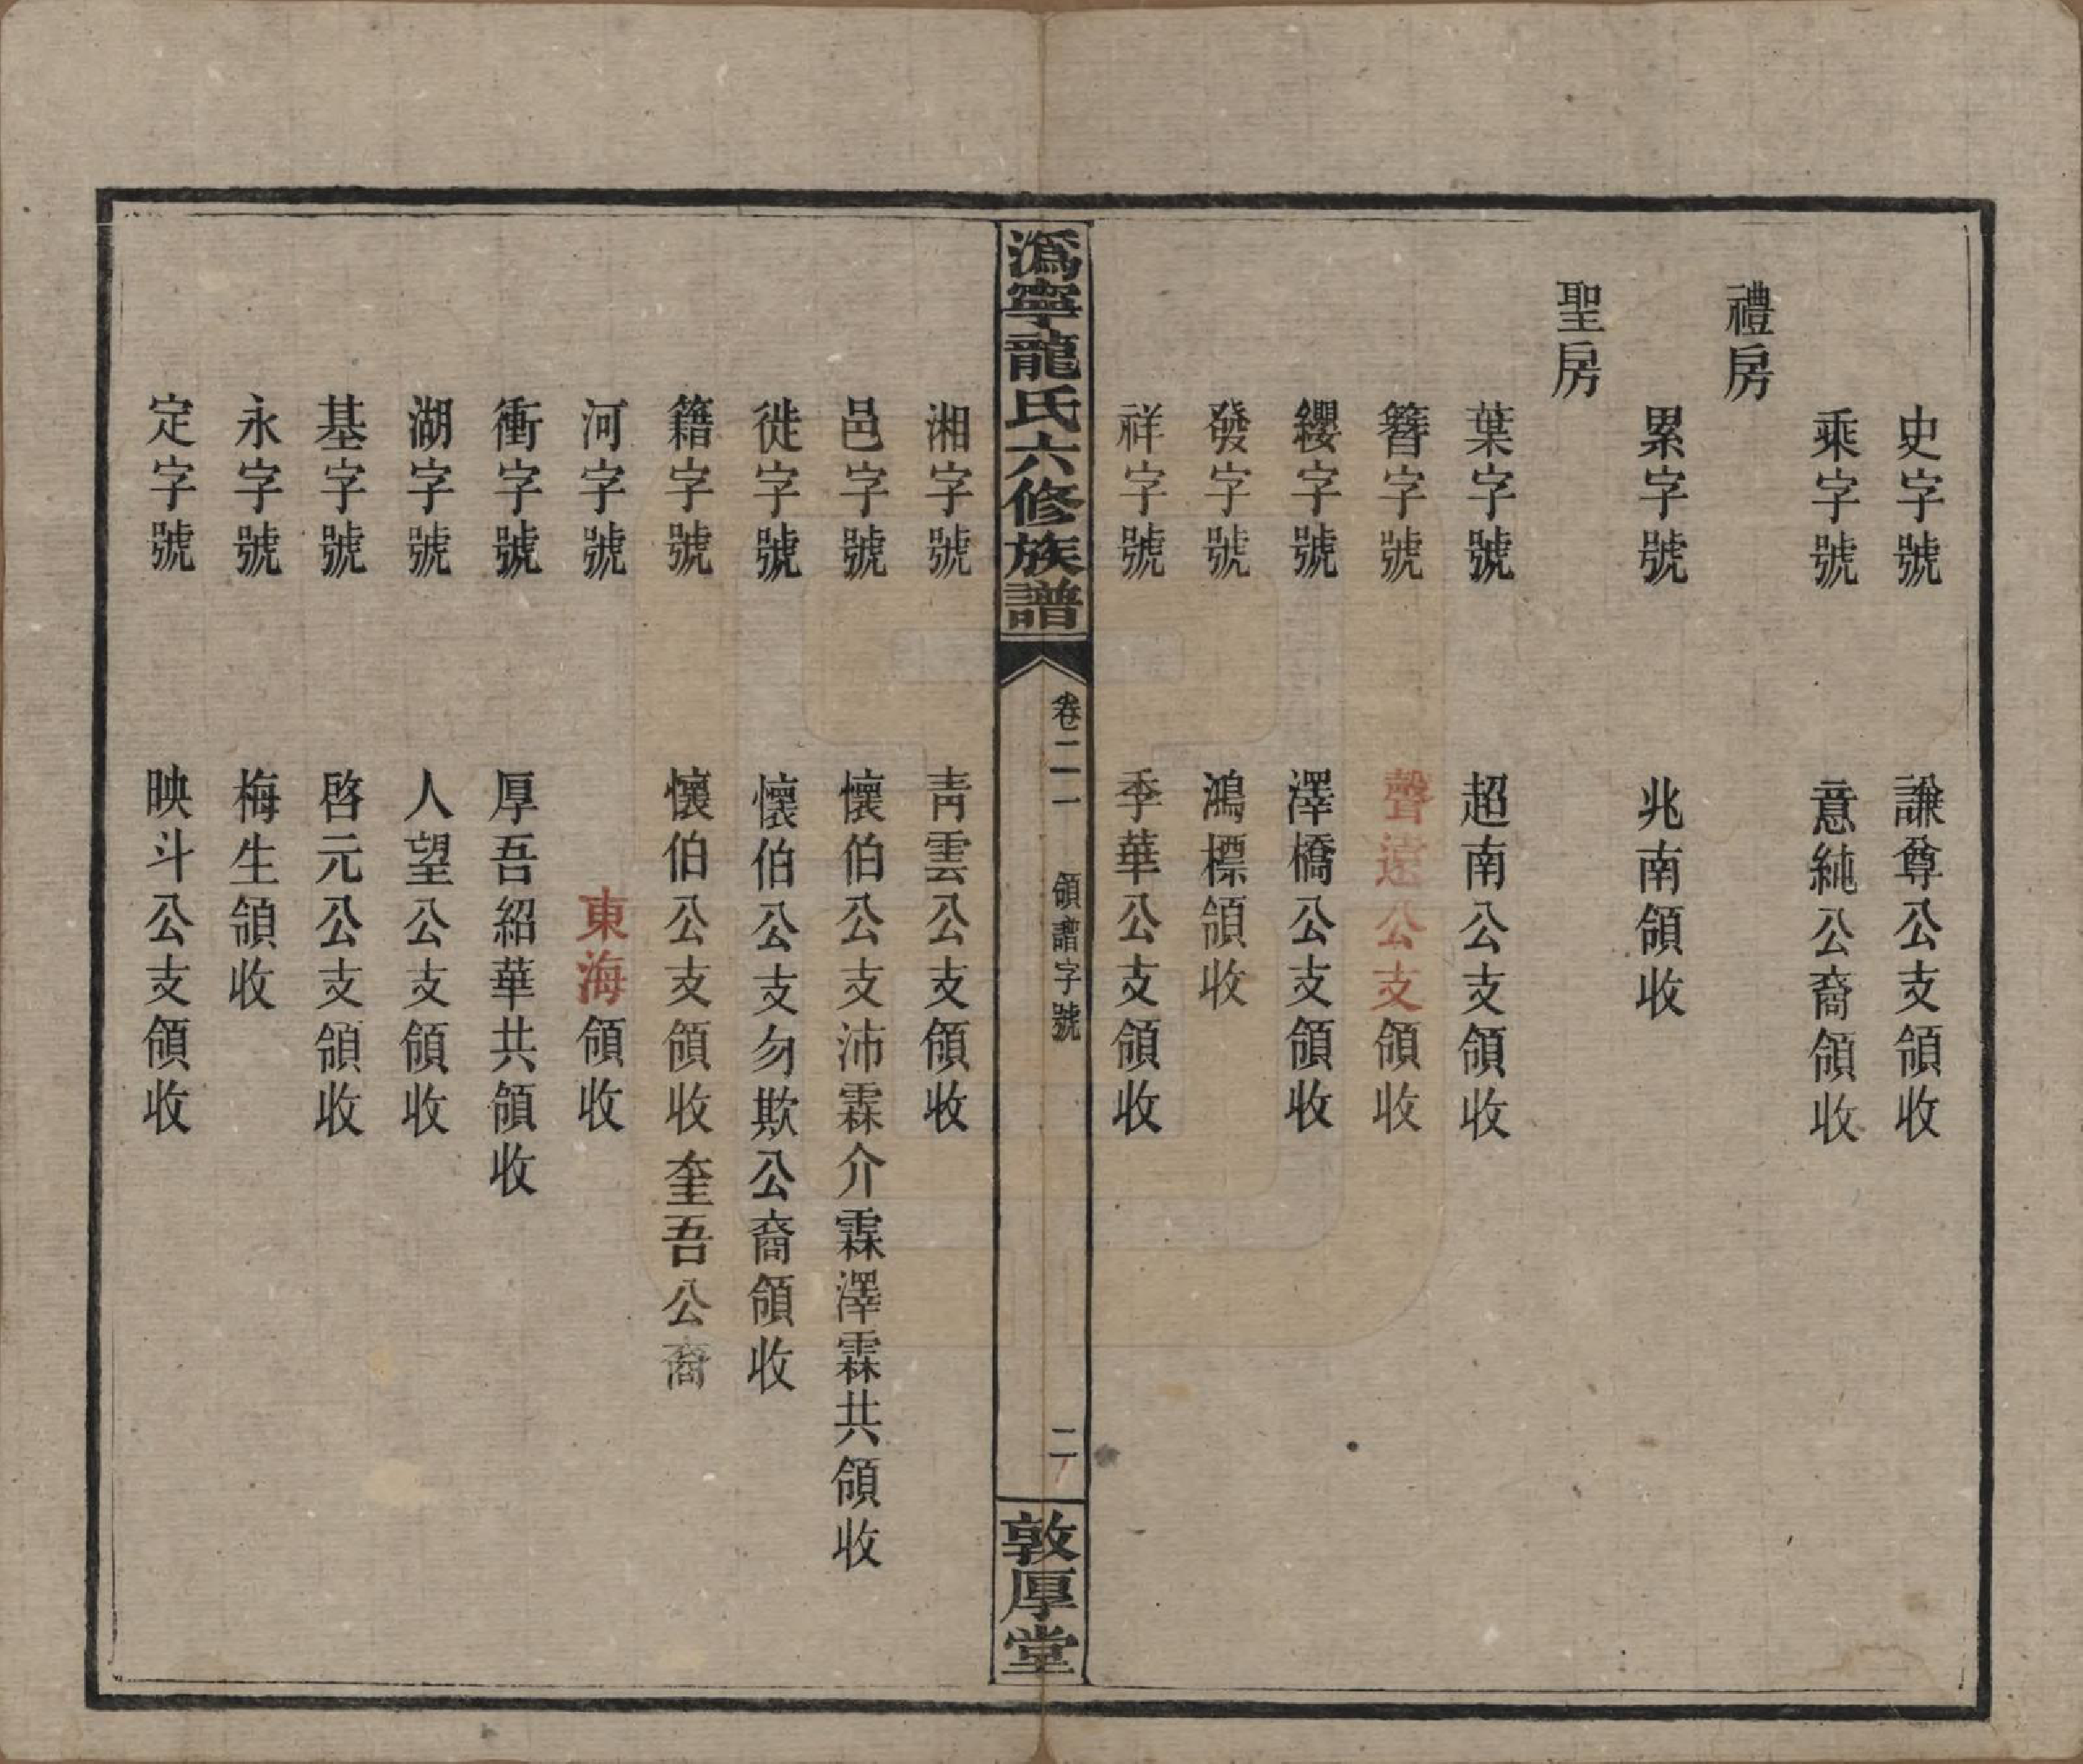 史字號　謙尊公支領收
乘字號　意純公裔領收
禮房
累字號　兆南領收
聖房
葉字號　超南公支領收
簪字號　聲遠公支領收
纓字號　澤橋公支領收
發字號　鴻標領收
祥字號　季華公支領收
溈寧龍氏六修族譜
卷二一　領譜字號
二
敦厚堂
湘字號　青雲公支領收
邑字號　懷伯公支沛霖介霖澤霖共領收
徙字號　懷伯公支勿欺公裔領收
籍字號　懷伯公支領收奎吾公裔
河字號　東海領收
衝字號　厚吾紹華共領收
湖字號　人望公支領收
基字號　啓元公支領收
永字號　梅生領收
定字號　映斗公支領收